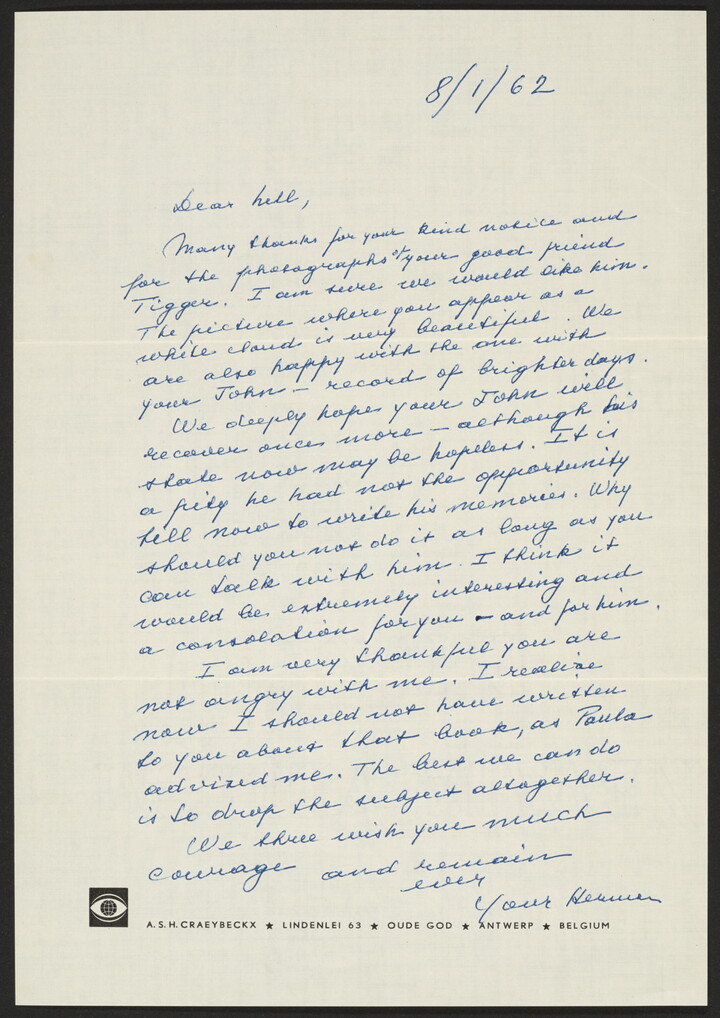 8/1/62
Dear hell,
Many thanks for your kind notice and
for the photographs of your good friend
Tigger. I am sure we would like him.
The picture where you appear as a
white cloud is very beautiful. We
are also happy with the one with
your John – record of brighter days.
We deeply hope your John will
recover once more – although his
state now may be hopeless. It is
a pity he had not the opportunity
till now to write his memories. Why
should you not do it as long as you
can talk with him. I think it
would be extremely interesting and
a consolation for you – and for him.
I am very thankful you are
not angry with me. I realize
now I should not have written
to you about that book, as Paula
advized me. The best we can do
is to drop the subject altogether.
We three wish you much
courage and remain
ever
Your Herman
A.S.H. CRAEYBECKX ★ LINDENLEI 63 ★ OUDE GOD ★ ANTWERP ★ BELGIUM